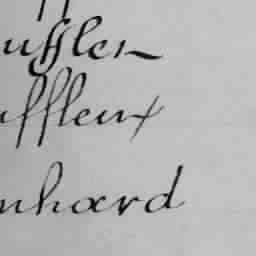 uffler
uffleux
nhard